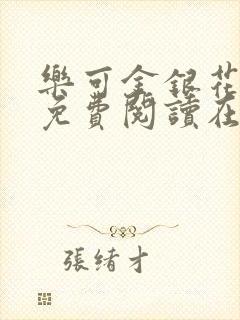 樂可金銀花
免費閱讀在
張緒才